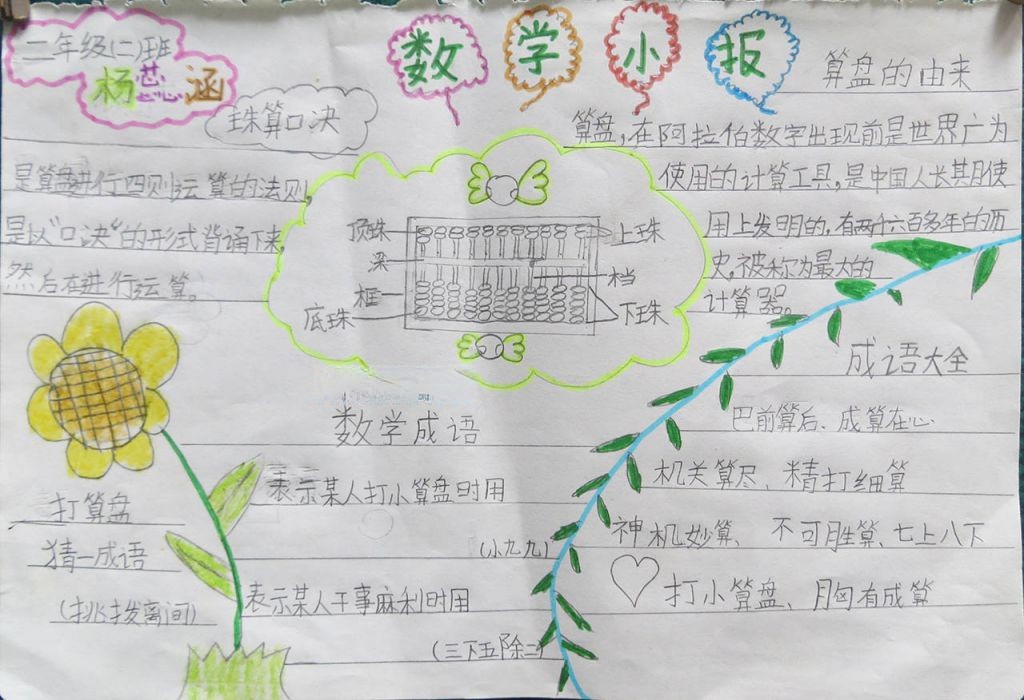 二年级(二)班
杨芯涵
数学小报
算盘的由来
珠算口决
算盘,在阿拉伯数字出现前是世界广为
使用的计算工具,是中国人长其月使
用上发明的,有两千六百多年的历
史,被称为最大的
计算器。
是算盘进行四则运算的法则,
是以“口决”的形式背诵下来,
然后在进行运算。
顶珠
梁
框
底珠
上珠
档
下珠
成语大全
巴前算后、成算在心
机关算尽、精打细算
神机妙算、不可胜算、七上八下
打小算盘、胸有成算
数学成语
表示某人打小算盘时用
(小九九)
表示某人干事麻利时用
(三下五除二)
打算盘
猜一成语
(挑拨离间)